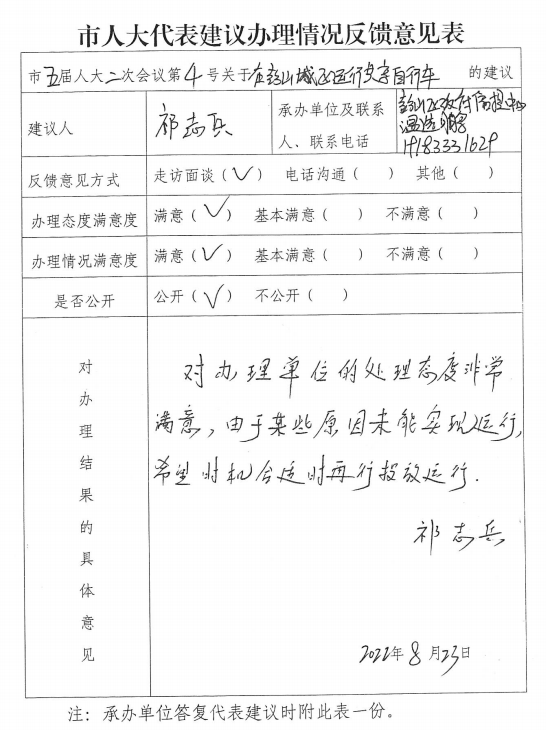 市人大代表建议办理情况反馈意见表
市五届人大二次会议第4号关于在彭山城区运行共享自行车的建议
建议人 祁志兵 承办单位及联系人、联系电话
反馈意见方式 走访面谈（√） 电话沟通（ ） 其他（ ）
办理态度满意度 满意（√） 基本满意（ ） 不满意（ ）
办理情况满意度 满意（√） 基本满意（ ） 不满意（ ）
是否公开 公开（√） 不公开（ ）
对办理结果的具体意见
对办理单位的处理态度非常
满意，由于某些原因未能实现运行，
希望时机合适时再行投放运行.
祁志兵
2022年8月23日
注：承办单位答复代表建议时附此表一份。